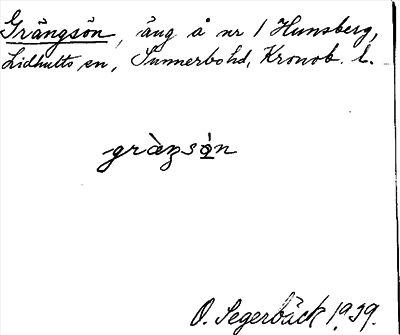 Grängsön, äng å nr 1 Hunsberg,
Lidhults sn, Sunnerbo hd, Kronob. l.
gràŋsò̤n
O. Segerbäck 1939.